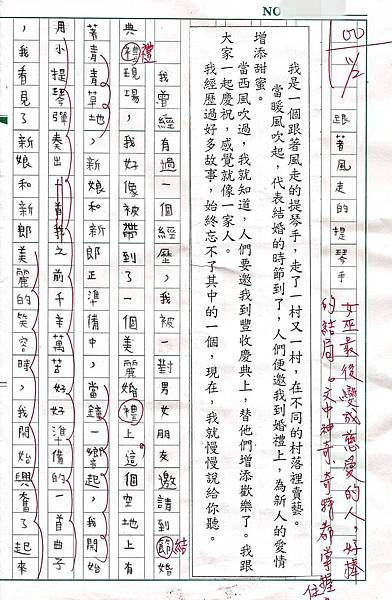 NO
100 11/2
跟著風走的提琴手
女巫最後變成慈愛的人,好棒
的結局。文中神奇、奇特都掌握
住。
我是一個跟著風走的提琴手,走了一村又一村,在不同的村落裡賣藝。
當暖風吹起,代表結婚的時節到了,人們便邀我到婚禮上,為新人的愛情
增添甜蜜。
當西風吹過,我就知道,人們要邀我到豐收慶典上,替他們增添歡樂了。我跟
大家一起慶祝,感覺就像一家人。
我經歷過好多故事,始終忘不了其中的一個,現在,我就慢慢說給你聽。
我曾經有過一個經歷,我被一對男女朋友邀請到節婚
結
典禮現場,我好像被帶到了一個美麗婚禮上。這個空地上有
禮
著青青草地,新娘和新郎正準備中,當鐘一響起,我開始
用小提琴彈奏出一首我之前千辛萬苦好好準備的一首曲子
,我看見了新娘和新郎美麗的笑容時,我開始興奮了起來